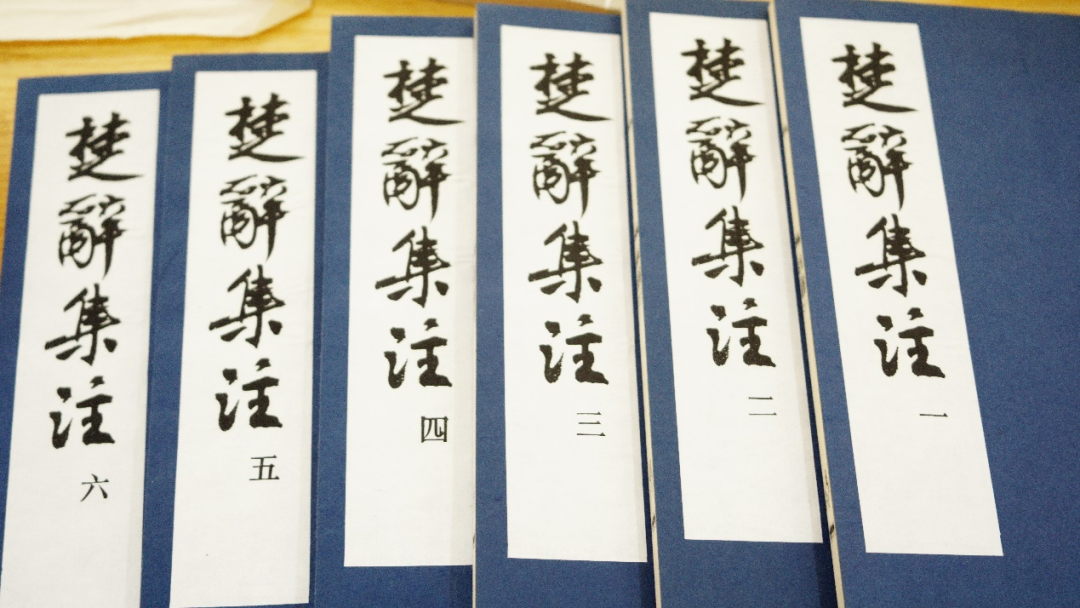 楚辭集注 一
楚辭集注 二
楚辭集注 三
楚辭集注 四
楚辭集注 五
楚辭集注 六